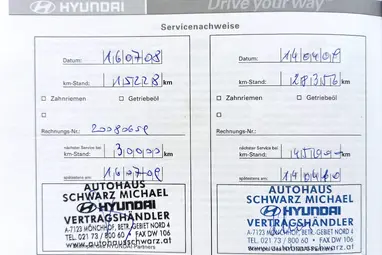 HYUNDAI
Drive your way
Servicenachweise
Datum: 16 07 08
km-Stand: 15228 km
Zahnriemen Getriebeöl
Rechnungs-Nr.:
nächster Service bei
km-Stand: 30000 km
spätestens am: 16 07 09
AUTOHAUS
SCHWARZ MICHAEL
HYUNDAI
VERTRAGSHÄNDLER
A-7123 MÖNCHHOF, BETR.GEBIET NORD 4
TEL. 02173 / 800 60 FAX DW 106
www.autohausschwarz.at
Datum: 14 04 09
km-Stand: 28356 km
Zahnriemen Getriebeöl
Rechnungs-Nr.:
nächster Service bei
km-Stand: km
spätestens am: 14 04 10
AUTOHAUS
SCHWARZ MICHAEL
HYUNDAI
VERTRAGSHÄNDLER
A-7123 MÖNCHHOF, BETR.GEBIET NORD 4
TEL. 02173 / 800 60 FAX DW 106
www.autohausschwarz.at